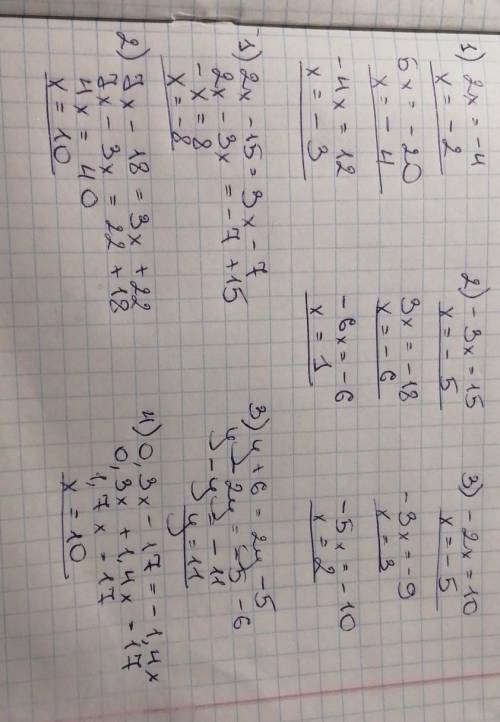 1) 2x = -4
x = -2
5x = -20
x = -4
-4x = 12
x = -3
2) -3x = 15
x = -5
3x = -18
x = -6
-6x = -6
x = 1
3) -2x = 10
x = -5
-3x = -9
x = 3
-5x = -10
x = 2
1) 2x - 15 = 3x - 7
2x - 3x = -7 + 15
-x = 8
x = -8
2) 7x - 18 = 3x + 22
7x - 3x = 22 + 18
4x = 40
x = 10
3) y + 6 = 2y - 5
y - 2y = -5 - 6
-y = -11
y = 11
4) 0,3x - 17 = -1,4x
0,3x + 1,4x = 17
1,7x = 17
x = 10